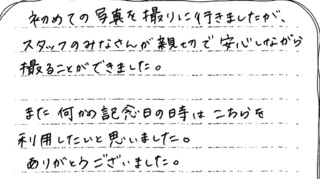 初めての写真を撮りに行きましたが、
スタッフのみなさんが親切で安心しながら
撮ることができました。
また何かの記念日の時はこちらを
利用したいと思いました。
ありがとうございました。